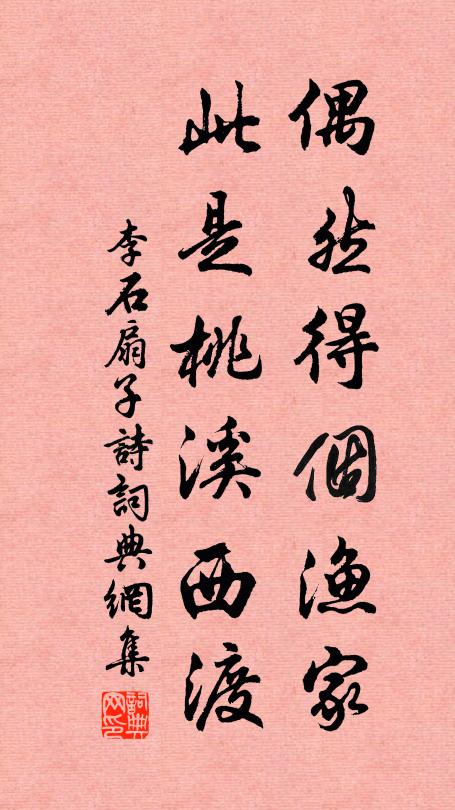 偶然得個漁家
此是桃溪西渡
李石扇子詩詞典網集
詞典網印